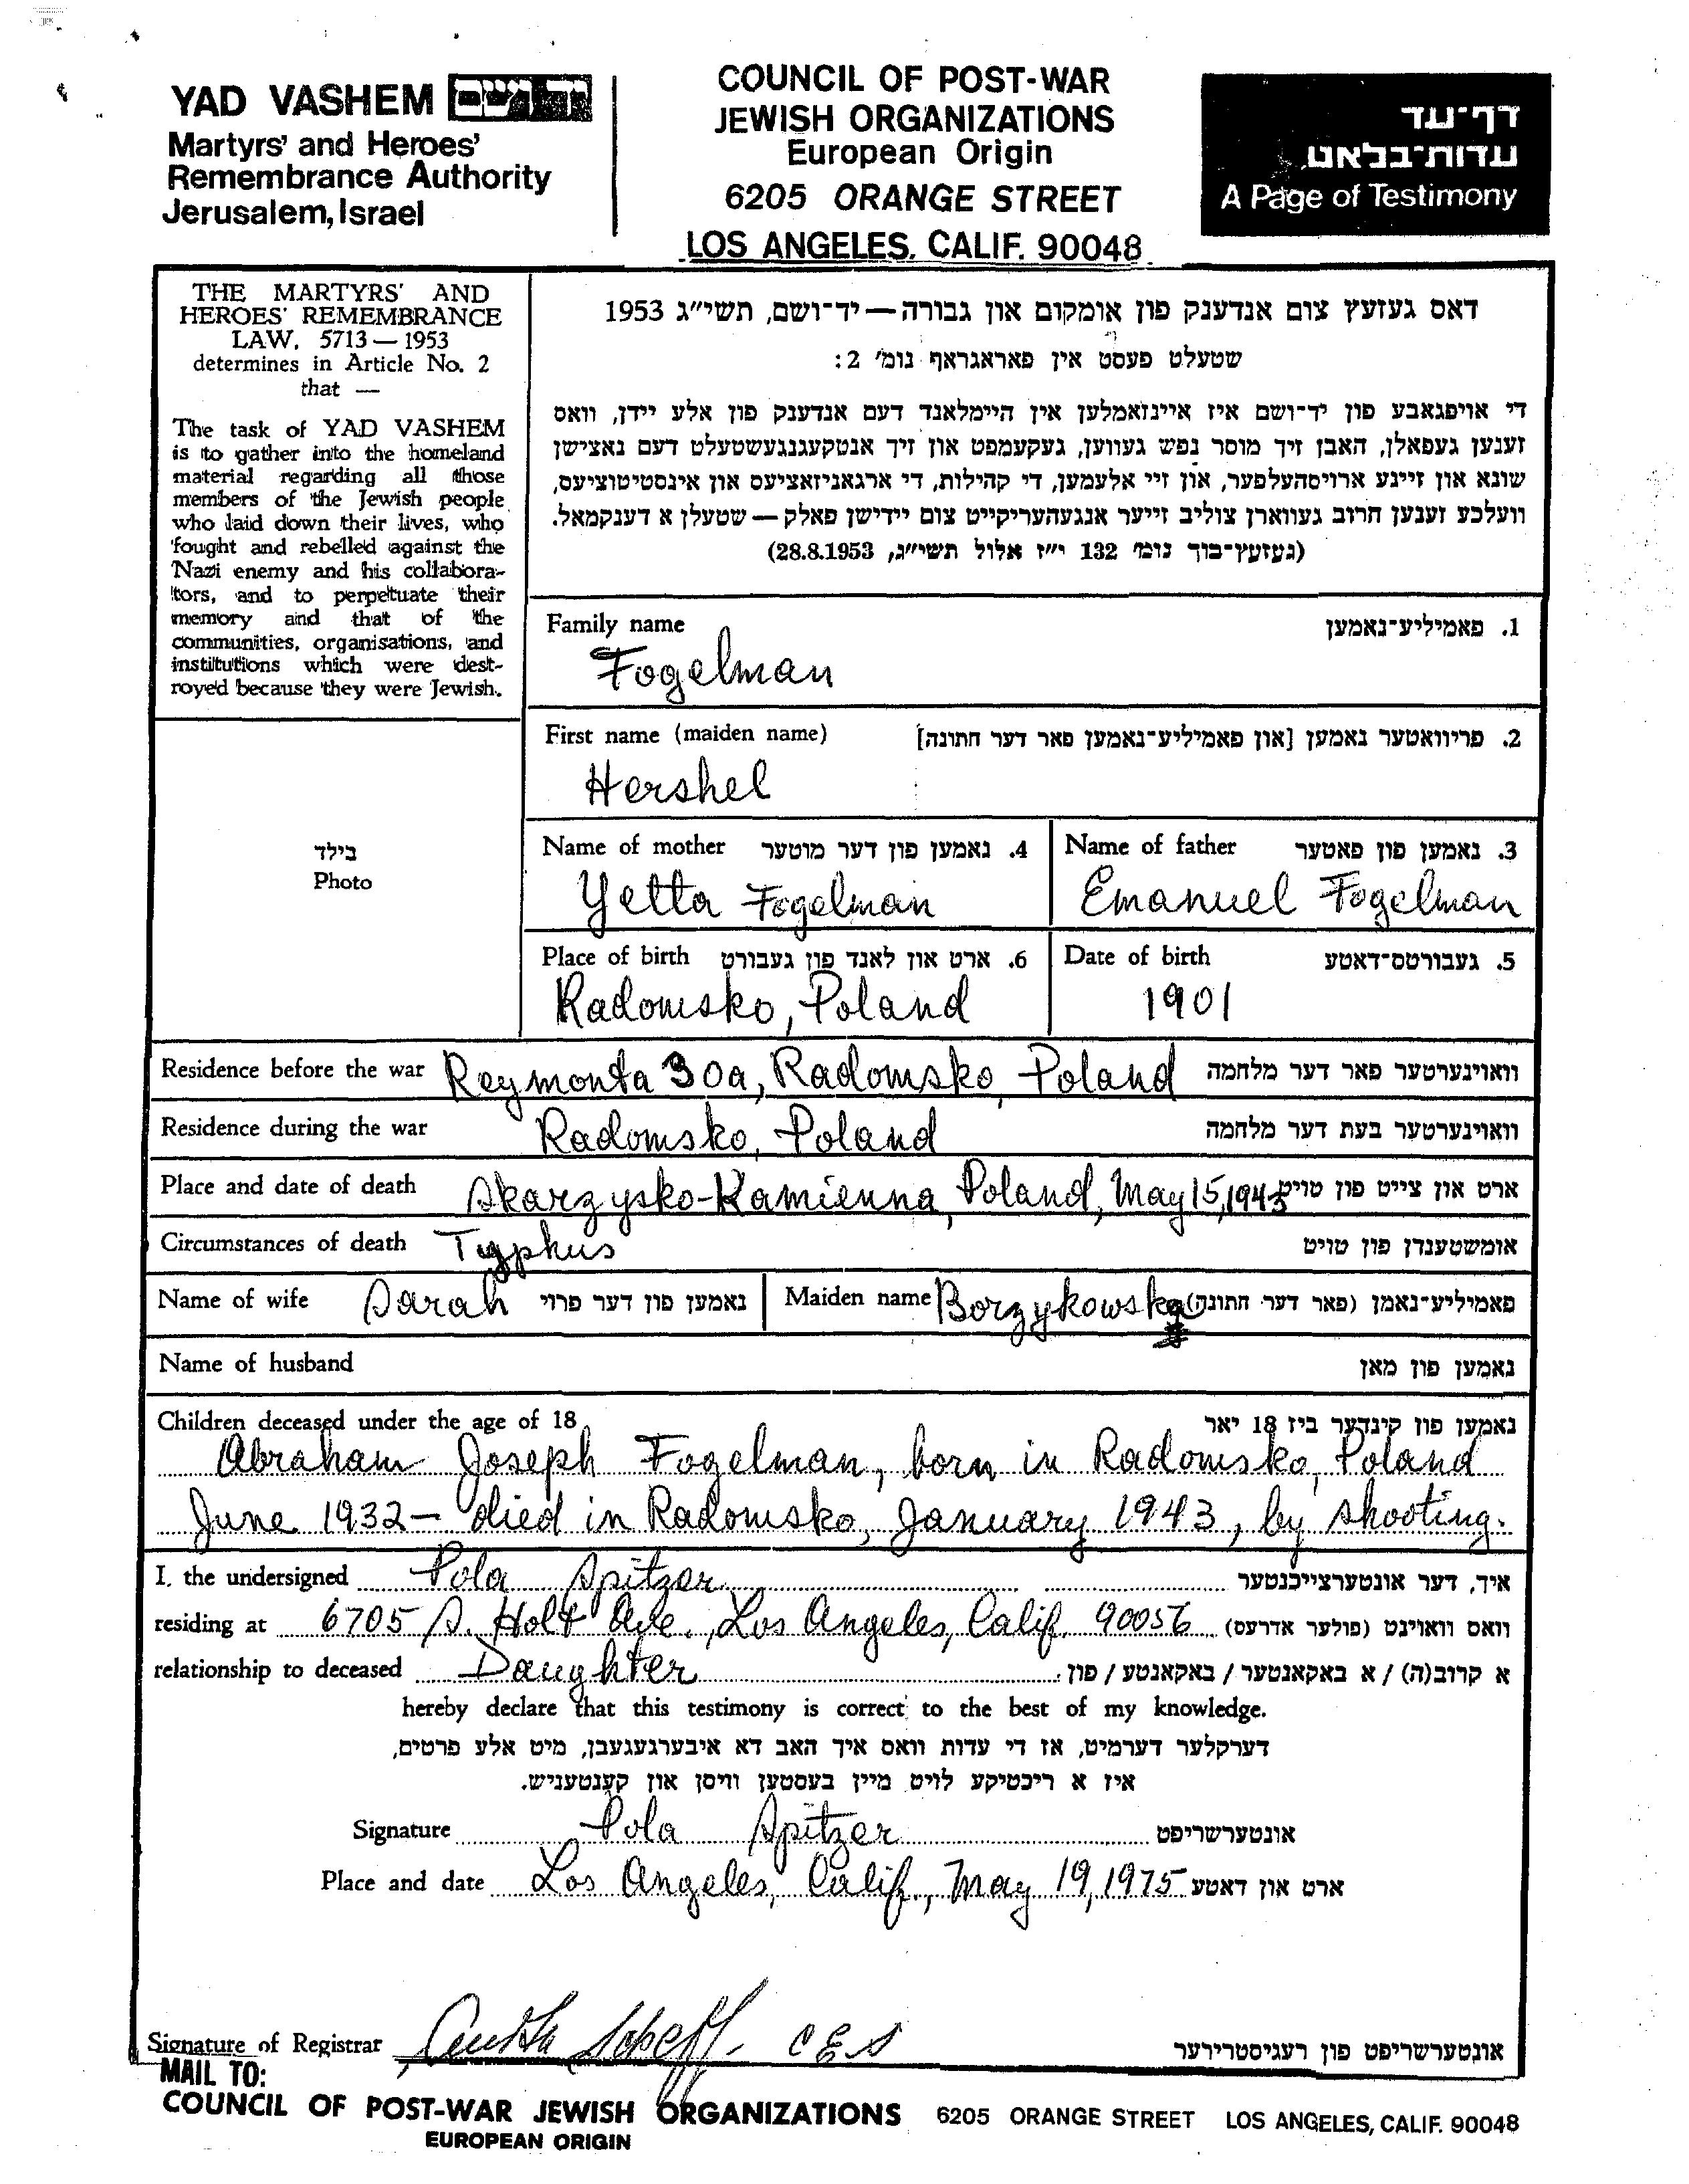 YAD VASHEM יד ושם
Martyrs' and Heroes'
Remembrance Authority
Jerusalem, Israel
COUNCIL OF POST-WAR
JEWISH ORGANIZATIONS
European Origin
6205 ORANGE STREET
LOS ANGELES, CALIF. 90048
דף־עד
עדות־בלאט
A Page of Testimony
THE MARTYRS' AND
HEROES' REMEMBRANCE
LAW, 5713 — 1953
determines in Article No. 2
that —
The task of YAD VASHEM
is to gather into the homeland
material regarding all those
members of the Jewish people
who laid down their lives, who
fought and rebelled against the
Nazi enemy and his collabora-
tors, and to perpetuate their
memory and that of the
communities, organisations, and
institutions which were dest-
royed because they were Jewish.
דאס געזעץ צום אנדענק פון אומקום און גבורה — יד־ושם, תשי״ג 1953
שטעלט פעסט אין פאראגראף נומ׳ 2:
די אויפגאבע פון יד־ושם איז איינזאמלען אין היימלאנד דעם אנדענק פון אלע יידן, וואס
זענען געפאלן, האבן זיך מוסר נפש געווען, געקעמפט און זיך אנטקעגנגעשטעלט דעם נאצישן
שונא און זיינע ארויסהעלפער, און זיי אלעמען, די קהילות, די ארגאניזאציעס און אינסטיטוציעס,
וועלכע זענען חרוב געווארן צוליב זייער אנגעהעריקייט צום יידישן פאלק — שטעלן א דענקמאל.
(געזעץ־בוך נומ׳ 132 י״ז אלול תשי״ג, 28.8.1953)
Family name 1. פאמיליע־נאמען
Fogelman
First name (maiden name) 2. פריוואטער נאמען [און פאמיליע־נאמען פאר דער חתונה]
Hershel
בילד
Photo
Name of mother 4. נאמען פון דער מוטער Name of father 3. נאמען פון פאטער
Yetta Fogelman Emanuel Fogelman
Place of birth 6. ארט און לאנד פון געבורט Date of birth 5. געבורטס־דאטע
Radomsko, Poland 1901
Residence before the war Reymonta 30a, Radomsko, Poland וואוינערטער פאר דער מלחמה
Residence during the war Radomsko, Poland וואוינערטער בעת דער מלחמה
Place and date of death Skarzysko-Kamienna, Poland, May 15, 1943 ארט און צייט פון טויט
Circumstances of death Typhus אומשטענדן פון טויט
Name of wife Sarah נאמען פון דער פרוי Maiden name Borzykowska פאמיליע־נאמן (פאר דער חתונה)
Name of husband נאמען פון מאן
Children deceased under the age of 18 נאמען פון קינדער ביז 18 יאר
Abraham Joseph Fogelman, born in Radomsko, Poland
June 1932 – died in Radomsko, January 1943, by shooting.
I, the undersigned Pola Spitzer איך, דער אונטערצייכנטער
residing at 6705 S. Holt Ave., Los Angeles, Calif. 90056 וואס וואוינט (פולער אדרעס)
relationship to deceased Daughter א קרוב(ה) / א באקאנטער / באקאנטע / פון:
hereby declare that this testimony is correct to the best of my knowledge.
דערקלער דערמיט, אז די עדות וואס איך האב דא איבערגעגעבן, מיט אלע פרטים,
איז א ריכטיקע לויט מיין בעסטען וויסן און קענטעניש.
Signature Pola Spitzer אונטערשריפט
Place and date Los Angeles, Calif., May 19, 1975 ארט און דאטע
Signature of Registrar אונטערשריפט פון רעגיסטרירער
MAIL TO:
COUNCIL OF POST-WAR JEWISH ORGANIZATIONS 6205 ORANGE STREET LOS ANGELES, CALIF. 90048
EUROPEAN ORIGIN